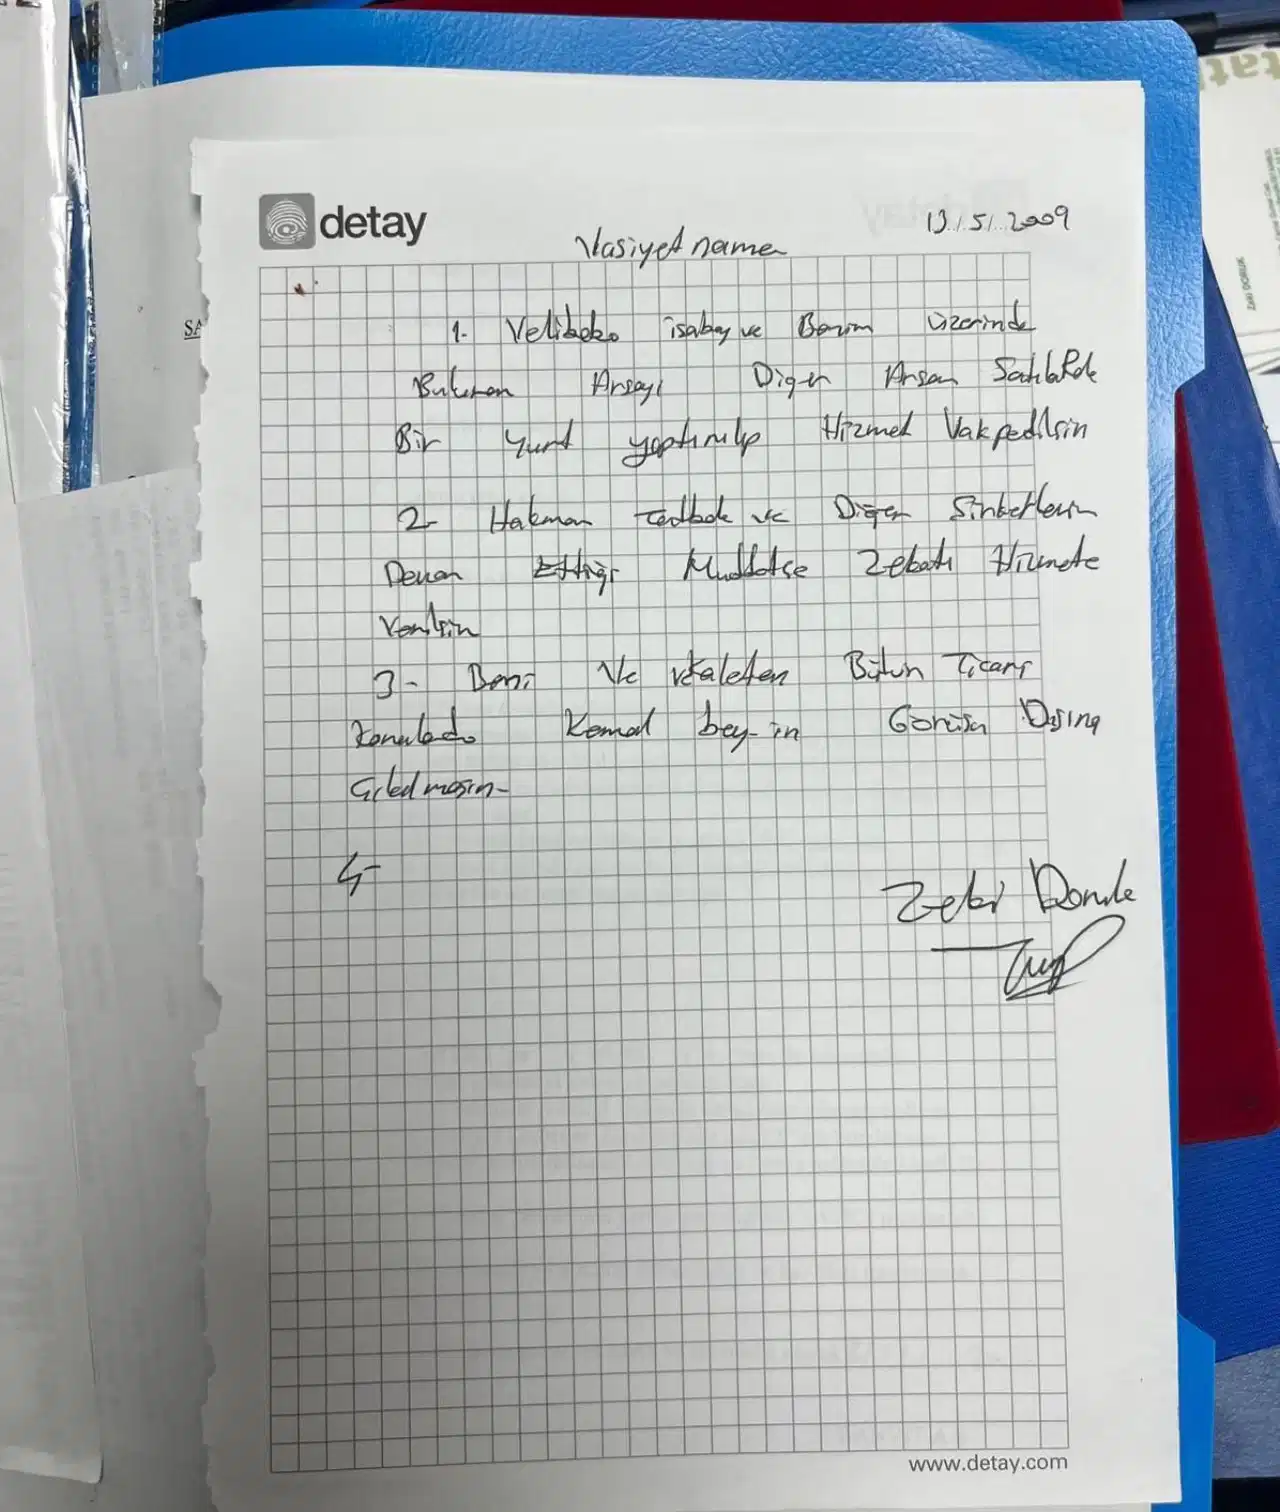 detay
13/5/2009
Vasiyetname
1. Velibaba isabey ve Benim üzerinde
Bulunan Arsayı Diğer Arsam
Bir Yurt yaptırılıp Hizmet Vakpedilsin
2- Hakman ve Diğer Sirketlerin
Devam Ettiği Muddetçe Zekatı Hizmete
Verilsin
3- Beni Ve vekaleten Bütün Ticari
Konularda Kemal bey-in Görüsü Dısına
4-
Zeki Doruk
www.detay.com
Zeki DORUK